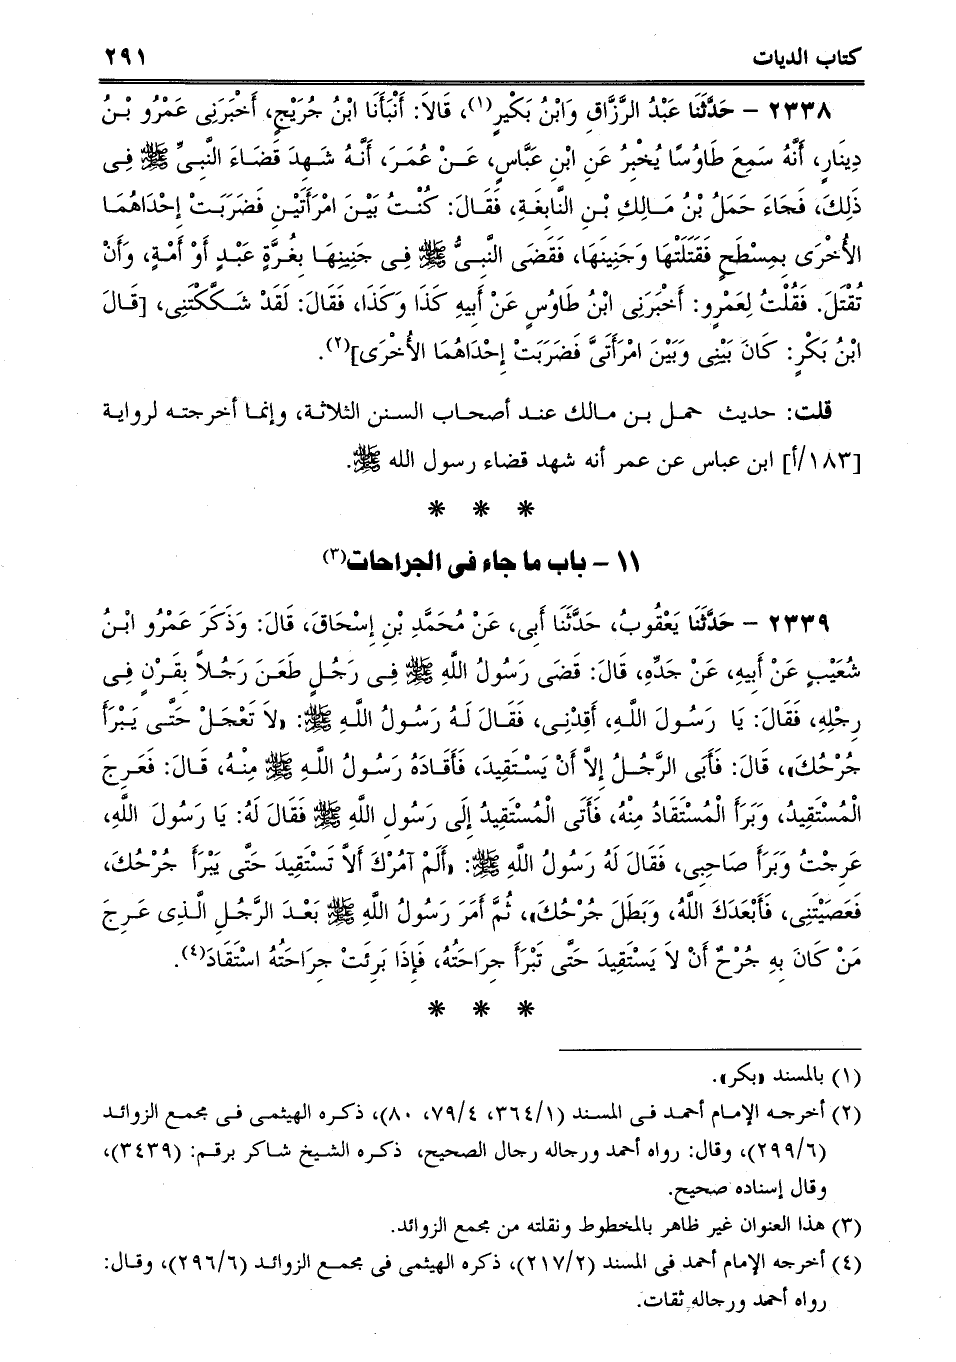 كتاب الديات ٢٩١
٢٣٣٨ – حَدَّثَنَا عَبْدُ الرَّزَّاقِ وَابْنُ بَكْيرٍ(١)، قَالاَ: أَنْبَأَنَا ابْنُ جُرَيْجٍ، أَخْبَرَنِى عَمْرُو بْنُ
دِينَارٍ، أَنَّهُ سَمِعَ طَاوُسًا يُخْبِرُ عَنِ ابْنِ عَبَّاسٍ، عَنْ عُمَرَ، أَنَّهُ شَهِدَ قَضَاءَ النَّبِىِّ ﷺ فِى
ذَلِكَ، فَجَاءَ حَمَلُ بْنُ مَالِكِ بْنِ النَّابِغَةِ، فَقَالَ: كُنْتُ بَيْنَ امْرَأَتَيْنِ فَضَرَبَتْ إِحْدَاهُمَا
الأُخْرَى بِمِسْطَحٍ فَقَتَلَتْهَا وَجَنِينَهَا، فَقَضَى النَّبِىُّ ﷺ فِى جَنِينِهَا بِغُرَّةٍ عَبْدٍ أَوْ أَمَةٍ، وَأَنْ
تُقْتَلَ. فَقُلْتُ لِعَمْرٍو: أَخْبَرَنِى ابْنُ طَاوُسٍ عَنْ أَبِيهِ كَذَا وَكَذَا، فَقَالَ: لَقَدْ شَكَّكْتَنِى، [قَالَ
ابْنُ بَكْرٍ: كَانَ بَيْنِى وَبَيْنَ امْرَأَتَىَّ فَضَرَبَتْ إِحْدَاهُمَا الأُخْرَى](٢).
قلت: حديث حمل بن مالك عند أصحاب السنن الثلاثة، وإنما أخرجته لرواية
[١٨٣/أ] ابن عباس عن عمر أنه شهد قضاء رسول الله ﷺ.
* * *
١١ – باب ما جاء فى الجراحات(٣)
٢٣٣٩ – حَدَّثَنَا يَعْقُوبُ، حَدَّثَنَا أَبِى، عَنْ مُحَمَّدِ بْنِ إِسْحَاقَ، قَالَ: وَذَكَرَ عَمْرُو ابْنُ
شُعَيْبٍ عَنْ أَبِيهِ، عَنْ جَدِّهِ، قَالَ: قَضَى رَسُولُ اللَّهِ ﷺ فِى رَجُلٍ طَعَنَ رَجُلاً بِقَرْنٍ فِى
رِجْلِهِ، فَقَالَ: يَا رَسُولَ اللَّهِ، أَقِدْنِى، فَقَالَ لَهُ رَسُولُ اللَّهِ ﷺ: «لاَ تَعْجَلْ حَتَّى يَبْرَأَ
جُرْحُكَ»، قَالَ: فَأَبَى الرَّجُلُ إِلاَّ أَنْ يَسْتَقِيدَ، فَأَقَادَهُ رَسُولُ اللَّهِ ﷺ مِنْهُ، قَالَ: فَعَرِجَ
الْمُسْتَقِيدُ، وَبَرَأَ الْمُسْتَقَادُ مِنْهُ، فَأَتَى الْمُسْتَقِيدُ إِلَى رَسُولِ اللَّهِ ﷺ فَقَالَ لَهُ: يَا رَسُولَ اللَّهِ،
عَرِجْتُ وَبَرَأَ صَاحِبِى، فَقَالَ لَهُ رَسُولُ اللَّهِ ﷺ: «أَلَمْ آمُرْكَ أَلاَّ تَسْتَقِيدَ حَتَّى يَبْرَأَ جُرْحُكَ،
فَعَصَيْتَنِى، فَأَبْعَدَكَ اللَّهُ، وَبَطَلَ جُرْحُكَ»، ثُمَّ أَمَرَ رَسُولُ اللَّهِ ﷺ بَعْدَ الرَّجُلِ الَّذِى عَرِجَ
مَنْ كَانَ بِهِ جُرْحٌ أَنْ لاَ يَسْتَقِيدَ حَتَّى تَبْرَأَ جِرَاحَتُهُ، فَإِذَا بَرِئَتْ جِرَاحَتُهُ اسْتَقَادَ(٤).
* * *
(١) بالمسند «بكر».
(٢) أخرجه الإمام أحمد فى المسند (٣٦٤/١، ٧٩/٤، ٨٠)، ذكره الهيثمى فى مجمع الزوائد
(٢٩٩/٦)، وقال: رواه أحمد ورجاله رجال الصحيح، ذكره الشيخ شاكر برقم: (٣٤٣٩)،
وقال إسناده صحيح.
(٣) هذا العنوان غير ظاهر بالمخطوط ونقلته من مجمع الزوائد.
(٤) أخرجه الإمام أحمد فى المسند (٢١٧/٢)، ذكره الهيثمى فى مجمع الزوائد (٢٩٦/٦)، وقال:
رواه أحمد ورجاله ثقات.